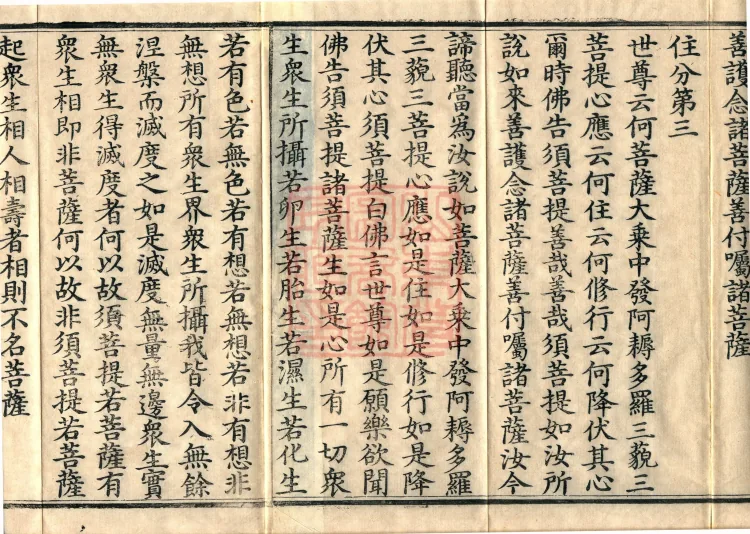 善護念諸菩薩善付囑諸菩薩
住分第三
世尊云何菩薩大乘中發阿耨多羅三藐三
菩提心應云何住云何修行云何降伏其心
爾時佛告須菩提善哉善哉須菩提如汝所
說如來善護念諸菩薩善付囑諸菩薩汝今
諦聽當為汝說如菩薩大乘中發阿耨多羅
三藐三菩提心應如是住如是修行如是降
伏其心須菩提白佛言世尊如是願樂欲聞
佛告須菩提諸菩薩生如是心所有一切衆
生衆生所攝若卵生若胎生若濕生若化生
若有色若無色若有想若無想若非有想非
無想所有衆生界衆生所攝我皆令入無餘
涅槃而滅度之如是滅度無量無邊衆生實
無衆生得滅度者何以故須菩提若菩薩有
衆生相即非菩薩何以故非須菩提若菩薩
起衆生相人相壽者相則不名菩薩